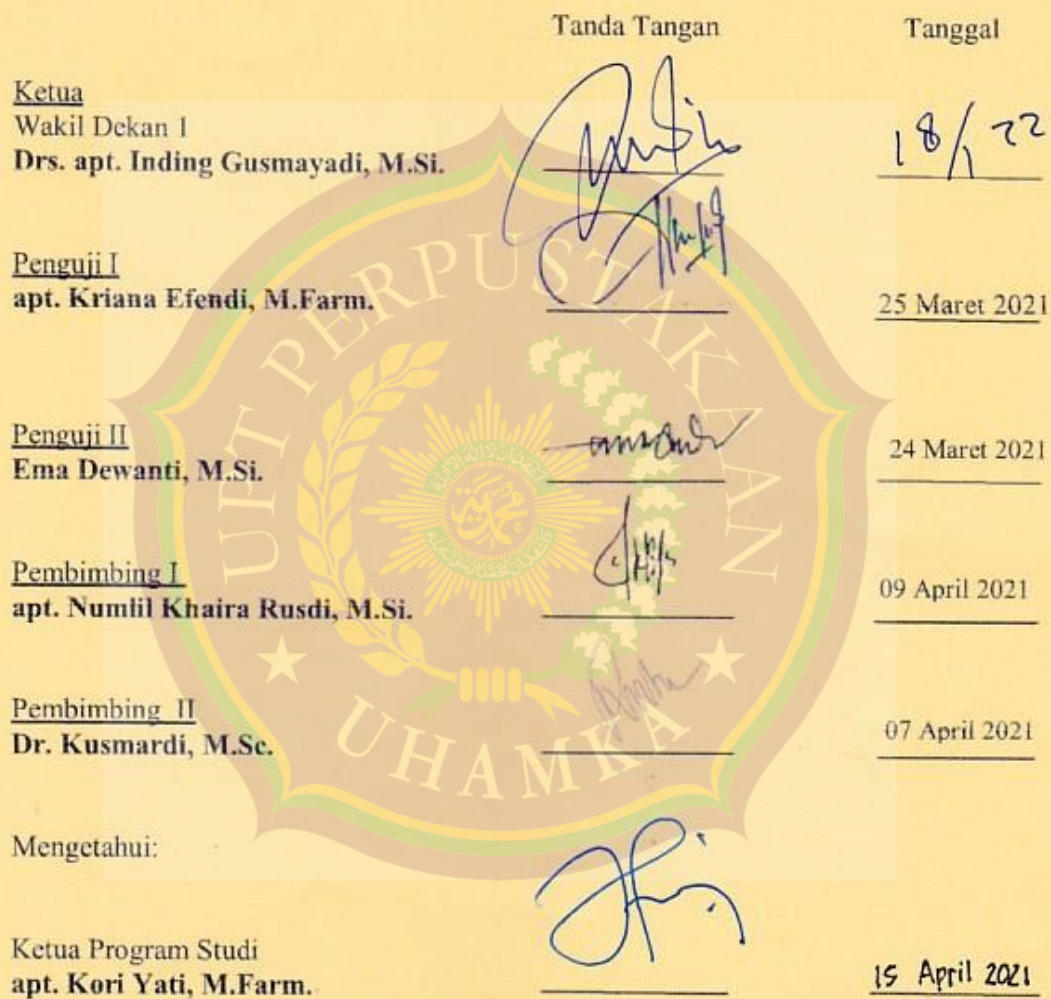 Tanda Tangan Tanggal
Ketua
Wakil Dekan 1
Drs. apt. Inding Gusmayadi, M.Si. 18/1 22
Penguji I
apt. Kriana Efendi, M.Farm. 25 Maret 2021
Penguji II
Ema Dewanti, M.Si. 24 Maret 2021
Pembimbing I
apt. Numlil Khaira Rusdi, M.Si. 09 April 2021
Pembimbing II
Dr. Kusmardi, M.Sc. 07 April 2021
Mengetahui:
Ketua Program Studi
apt. Kori Yati, M.Farm. 15 April 2021
UPT PERPUSTAKAAN
UHAMKA